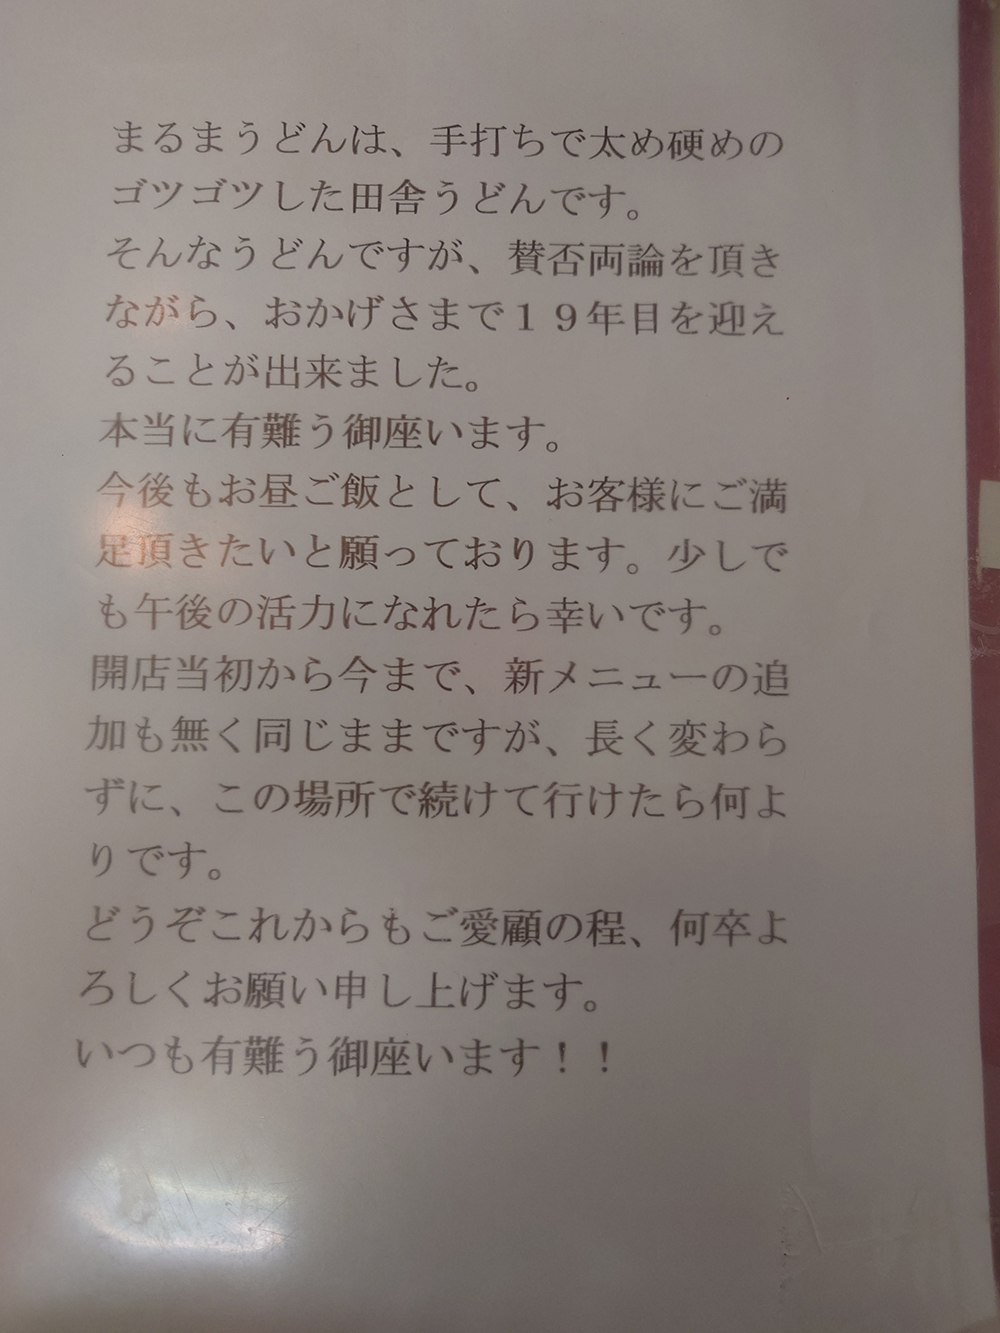 まるまうどんは、手打ちで太め硬めの
ゴツゴツした田舎うどんです。
そんなうどんですが、賛否両論を頂き
ながら、おかげさまで１９年目を迎え
ることが出来ました。
本当に有難う御座います。
今後もお昼ご飯として、お客様にご満
足頂きたいと願っております。少しで
も午後の活力になれたら幸いです。
開店当初から今まで、新メニューの追
加も無く同じままですが、長く変わら
ずに、この場所で続けて行けたら何よ
りです。
どうぞこれからもご愛顧の程、何卒よ
ろしくお願い申し上げます。
いつも有難う御座います！！